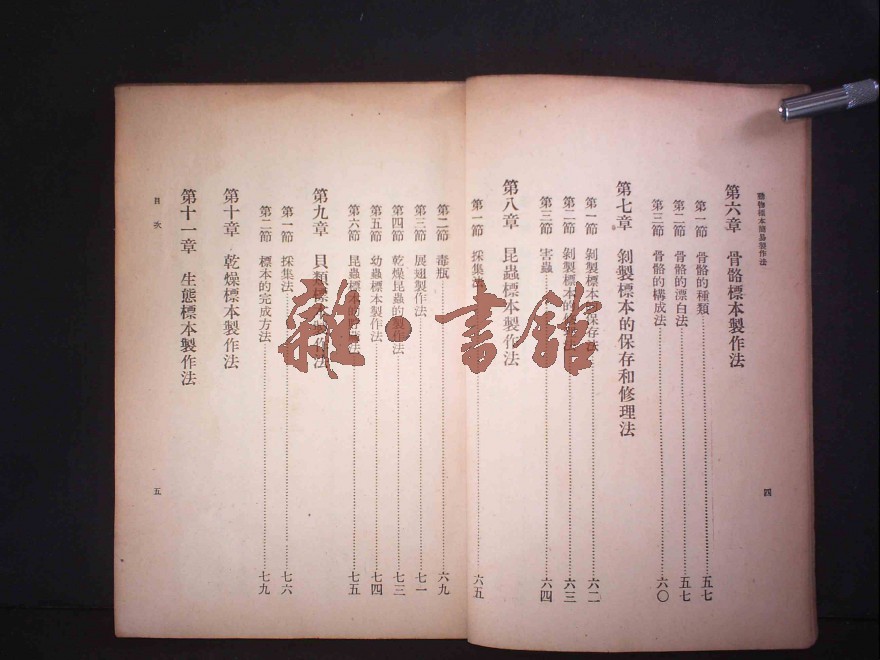 動物標本簡易製作法
第六章 骨骼標本製作法
第一節 骨骼的種類 五七
第二節 骨骼的漂白法 五七
第三節 骨骼的構成法 六〇
第七章 剝製標本的保存和修理法
第一節 剝製標本保存法 六二
第二節 剝製標本的 六三
第三節 害蟲 六四
第八章 昆蟲標本製作法
第一節 採集法 六五
四
第二節 毒瓶 六九
第三節 展翅製作法 七一
第四節 乾燥昆蟲的製作法 七三
第五節 幼蟲標本製作法 七四
第六節 昆蟲標本的 法 七五
第九章 貝類標本製作法
第一節 採集法 七六
第二節 標本的完成方法 七九
第十章 乾燥標本製作法
第十一章 生態標本製作法
目次
五
雜·書館